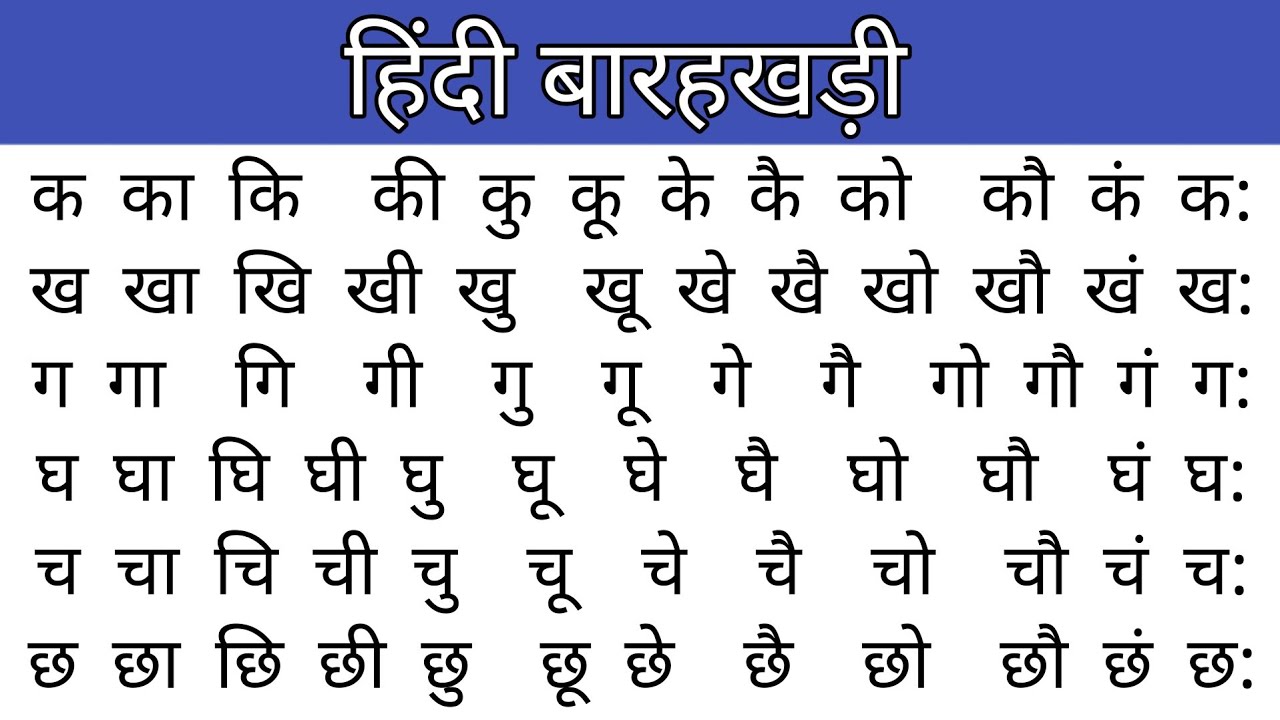 हिंदी बारहखड़ी
क का कि की कु कू के कै को कौ कं क:
ख खा खि खी खु खू खे खै खो खौ खं ख:
ग गा गि गी गु गू गे गै गो गौ गं ग:
घ घा घि घी घु घू घे घै घो घौ घं घ:
च चा चि ची चु चू चे चै चो चौ चं च:
छ छा छि छी छु छू छे छै छो छौ छं छ: